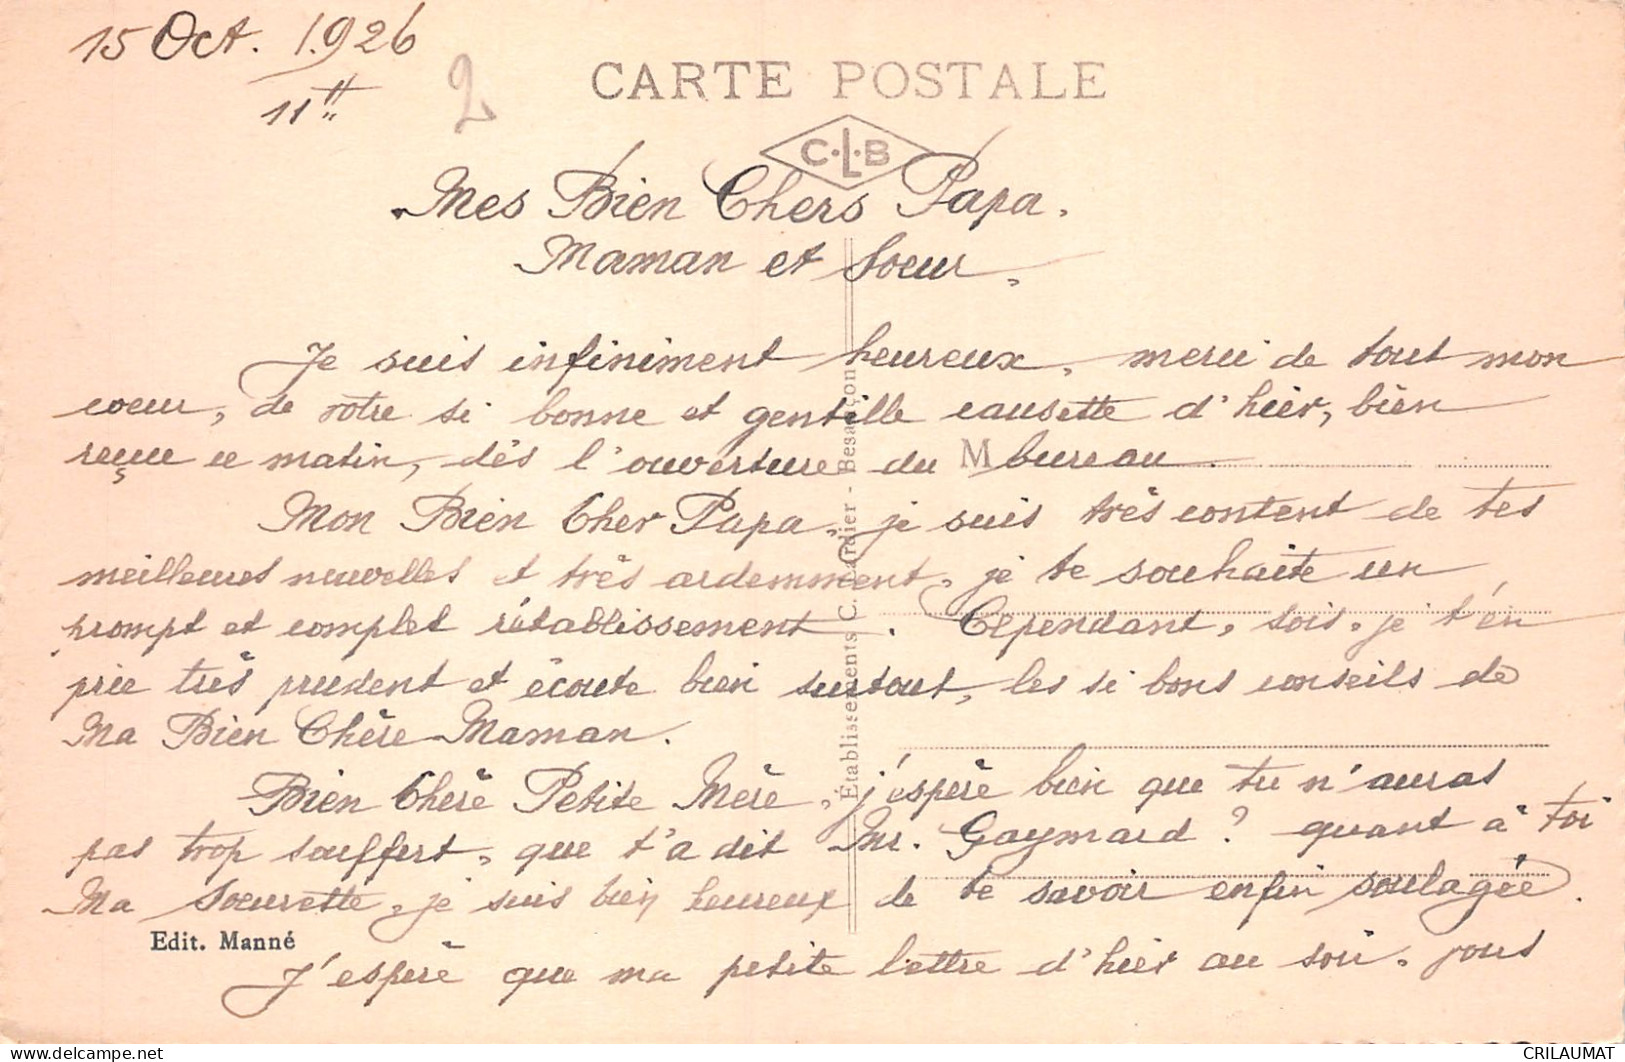 15 Oct. 1926
11H
2
CARTE POSTALE
C·L·B
Mes Bien Chers Papa,
Maman et Soeur,
Je suis infiniment heureux, merci de tout mon
coeur, de votre si bonne et gentille causette d'hier, bien
reçue ce matin, dès l'ouverture du bureau.
M
Mon Bien Cher Papa, je suis très content de tes
meilleures nouvelles et très ardemment, je te souhaite un
prompt et complet rétablissement. Cependant, sois, je t'en
prie très prudent et écoute bien surtout, les si bons conseils de
Ma Bien Chère Maman.
Bien Chère Petite Mère, j'espère bien que tu n'auras
pas trop souffert, que t'a dit Mr. Gaymard ? quant à toi
Ma Soeurette, je suis bien heureux de te savoir enfin soulagée.
J'espère que ma petite lettre d'hier au soir, vous
Edit. Manné
Établissements C. Lardier - Besançon
CRILAUMAT